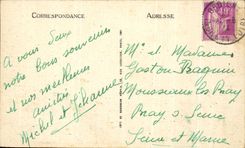 CORRESPONDANCE
ADRESSE
A vous deux
notre bons souvenirs
et nos meilleures
amitiés
Michel et Jehanne
Mr et Madame
Gaston
Mousseaux les Bray
Bray s/ Seine
Seine et Marne